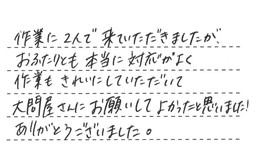 作業に2人で来ていただきましたが、
おふたりとも本当に対応がよく
作業もきれいにしていただいて
大問屋さんにお願いしてよかったと思いました!
ありがとうございました。